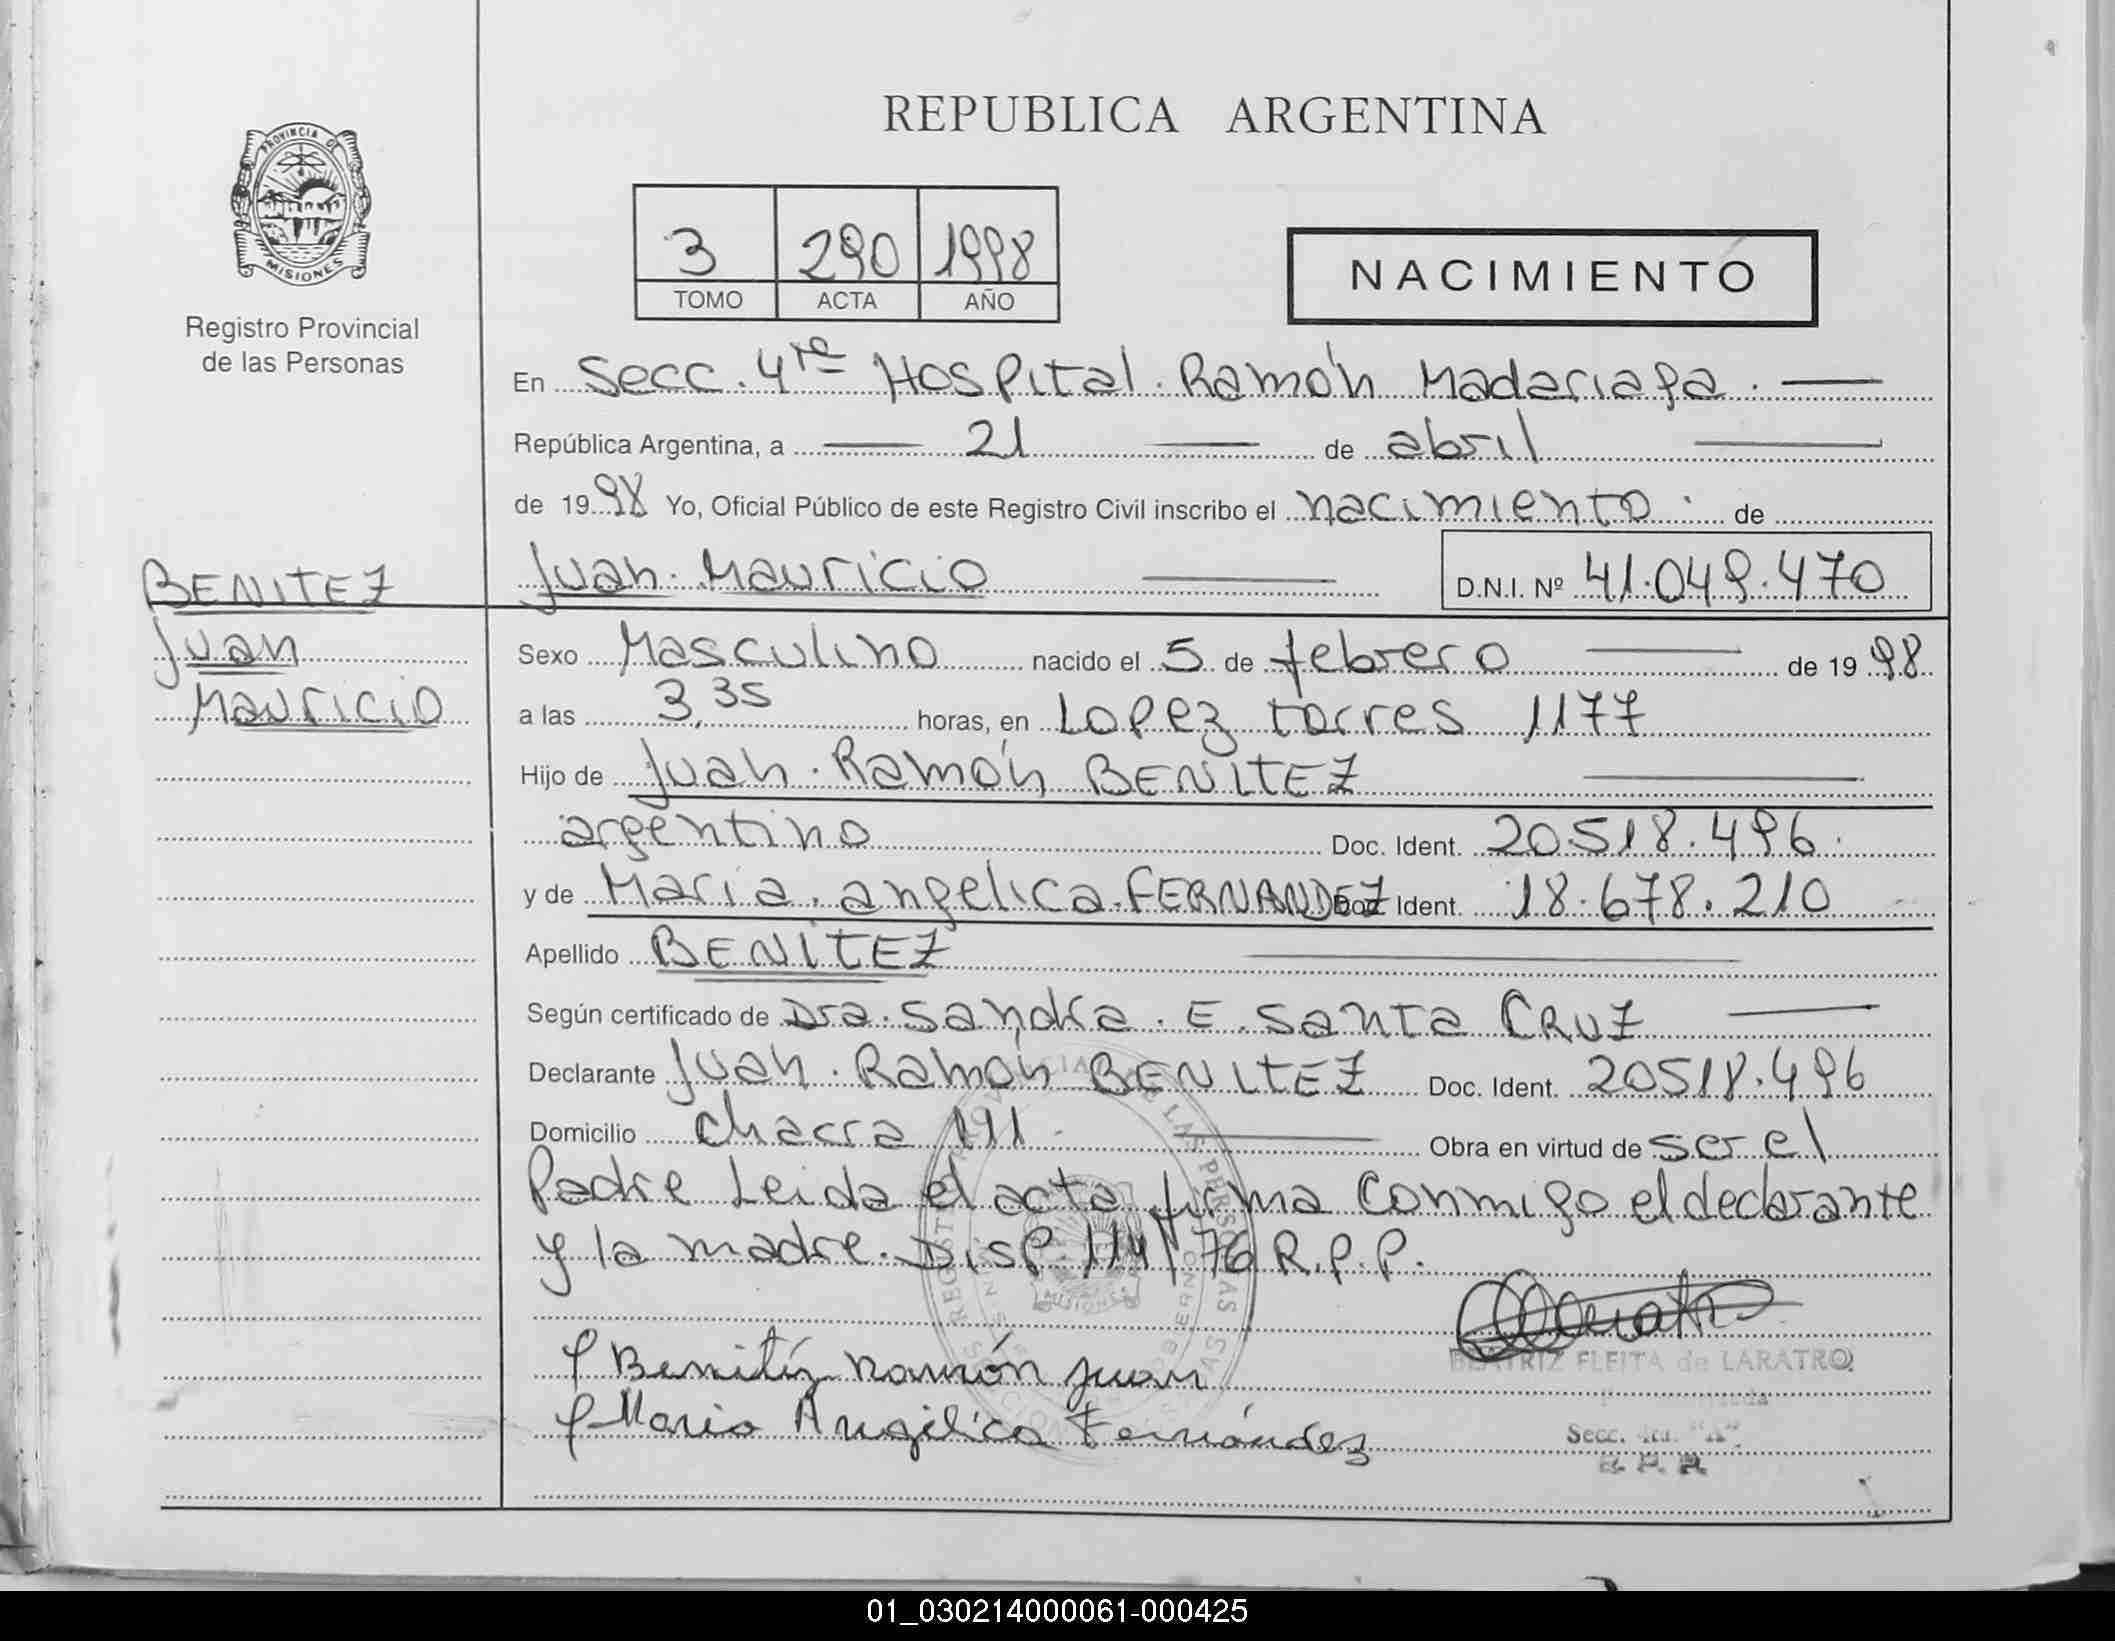 REPUBLICA ARGENTINA
PROVINCIA DE
MISIONES
Registro Provincial
de las Personas
3 290 1998
TOMO ACTA AÑO
NACIMIENTO
En Secc. 4ta Hospital Ramón Madariaga.
República Argentina, a 21 de abril
de 1998 Yo, Oficial Público de este Registro Civil inscribo el nacimiento de
Juan Mauricio D.N.I. Nº 41.049.470
BENITEZ
Juan
Mauricio
Sexo Masculino nacido el 5 de febrero de 1998
a las 3,35 horas, en Lopez torres 1177
Hijo de Juan Ramón BENITEZ
argentino Doc. Ident. 20.518.496.
y de María angelica FERNANDEZ Doc. Ident. 18.678.210
Apellido BENITEZ
Según certificado de Dra. Sandra E. Santa CRUZ
Declarante Juan Ramón BENITEZ Doc. Ident. 20518.496
Domicilio chacra 191 Obra en virtud de ser el
Padre Leida el acta firma conmigo el declarante
y la madre. Disp. 114/76 R.P.P.
Benitéz Ramón Juan
BEATRIZ FLEITA de LARATRO
Maria Angélica Fernández
Secc. 4ta. "A"
R. P. P.
01_030214000061-000425